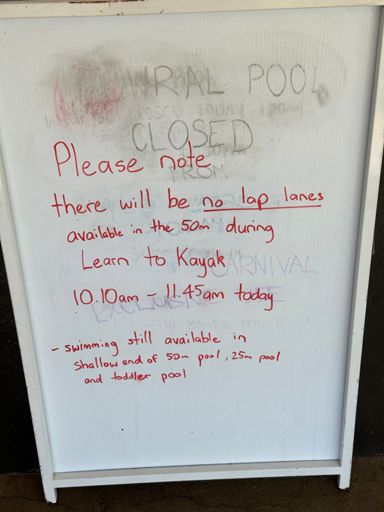 WRAL POOL
CLOSED
FROM
Please note
there will be no lap lanes
available in the 50m during
Learn to Kayak
CARNIVAL
10.10am - 11.45am today
- swimming still available in
shallow end of 50m pool, 25m pool
and toddler pool